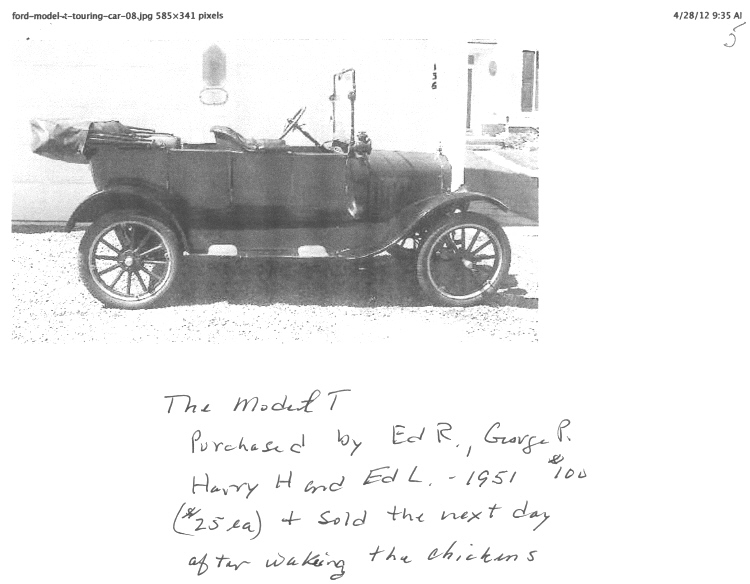 ford-model-t-touring-car-08.jpg 585×341 pixels
4/28/12 9:35 AM
5
136
The Model T
Purchased by Ed R., George P.
Harry H and Ed L. - 1951 $100
($25 ea) + Sold the next day
after waking the chickens